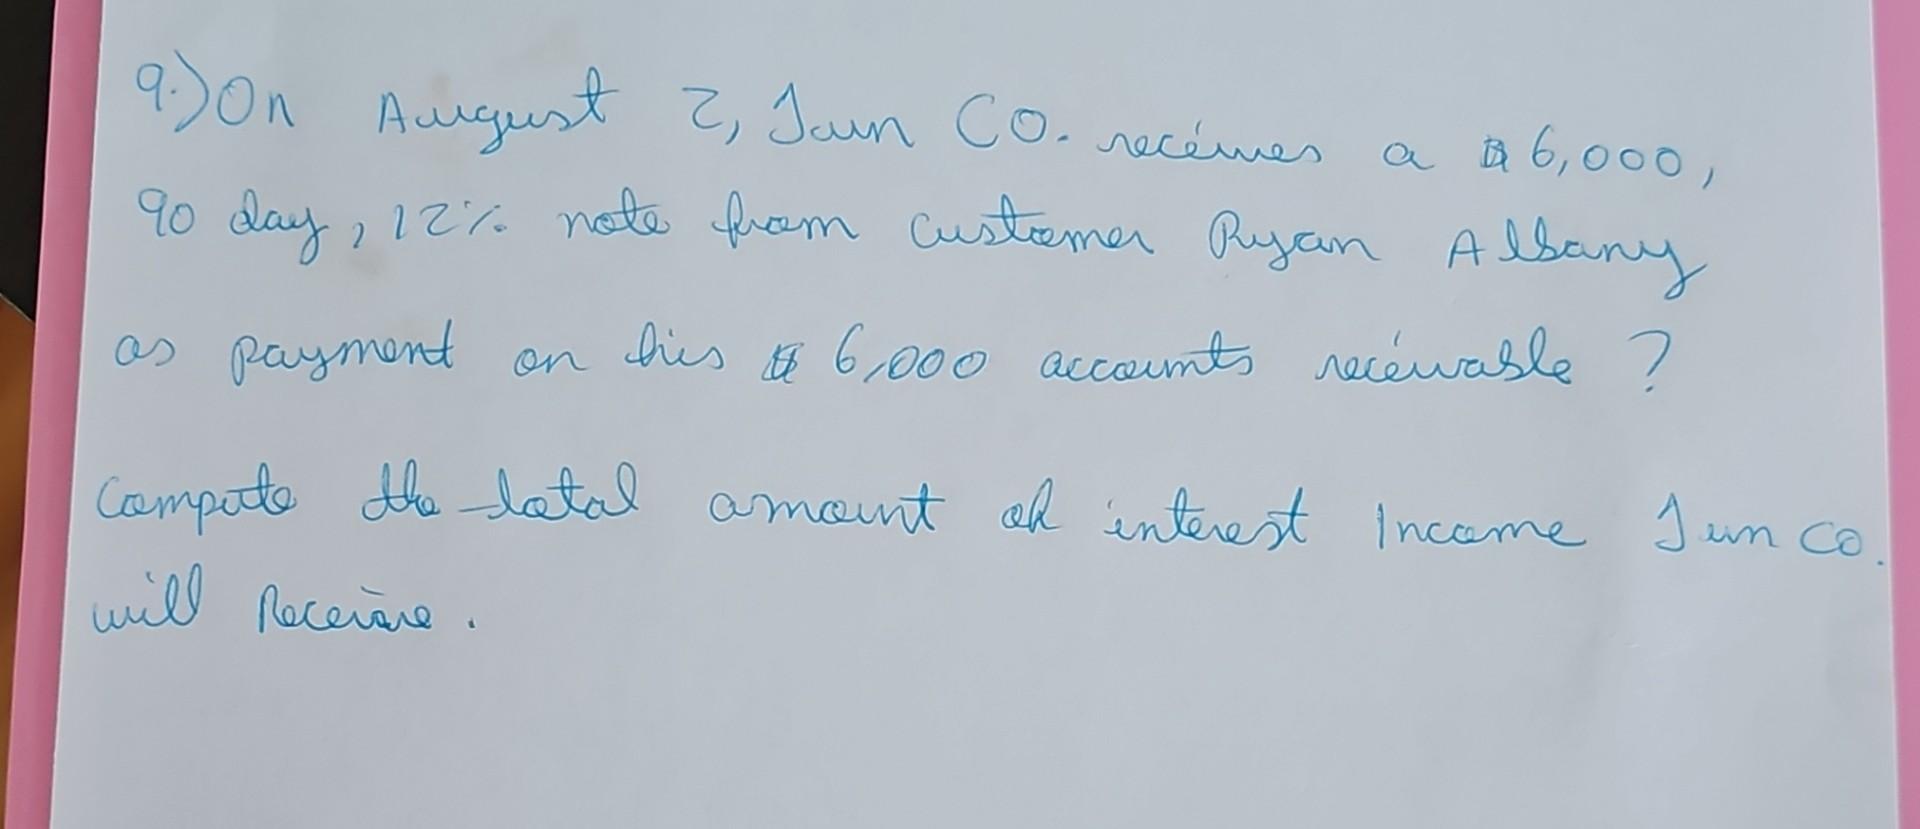 9.) On August 2, Jun Co. receives a $6,000,
90 day, 12% note from customer Ryan Albany
as payment on his $6,000 accounts receivable ?
Compute the total amount of interest Income Jun co.
will Receive.